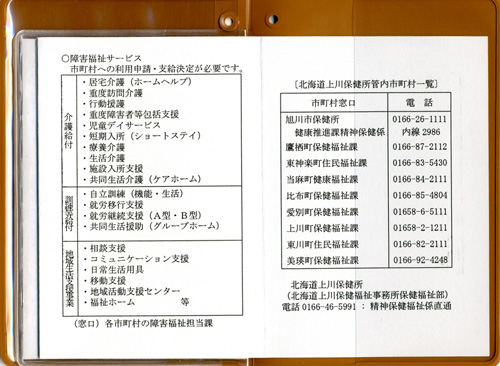 ○障害福祉サービス
市町村への利用申請・支給決定が必要です。
介護給付
・居宅介護（ホームヘルプ）
・重度訪問介護
・行動援護
・重度障害者等包括支援
・児童デイサービス
・短期入所（ショートステイ）
・療養介護
・生活介護
・施設入所支援
・共同生活介護（ケアホーム）
訓練等給付
・自立訓練（機能・生活）
・就労移行支援
・就労継続支援（A型・B型）
・共同生活援助（グループホーム）
地域生活支援事業
・相談支援
・コミュニケーション支援
・日常生活用具
・移動支援
・地域活動支援センター
・福祉ホーム 等
（窓口）各市町村の障害福祉担当課
〔北海道上川保健所管内市町村一覧〕
市町村窓口 電話
旭川市保健所 0166-26-1111
健康推進課精神保健係 内線 2986
鷹栖町保健福祉課 0166-87-2112
東神楽町住民福祉課 0166-83-5430
当麻町健康福祉課 0166-84-2111
比布町保健福祉課 0166-85-4804
愛別町保健福祉課 01658-6-5111
上川町保健福祉課 01658-2-1211
東川町住民福祉課 0166-82-2111
美瑛町保健福祉課 0166-92-4248
北海道上川保健所
（北海道上川保健福祉事務所保健福祉部）
電話 0166-46-5991：精神保健福祉係直通